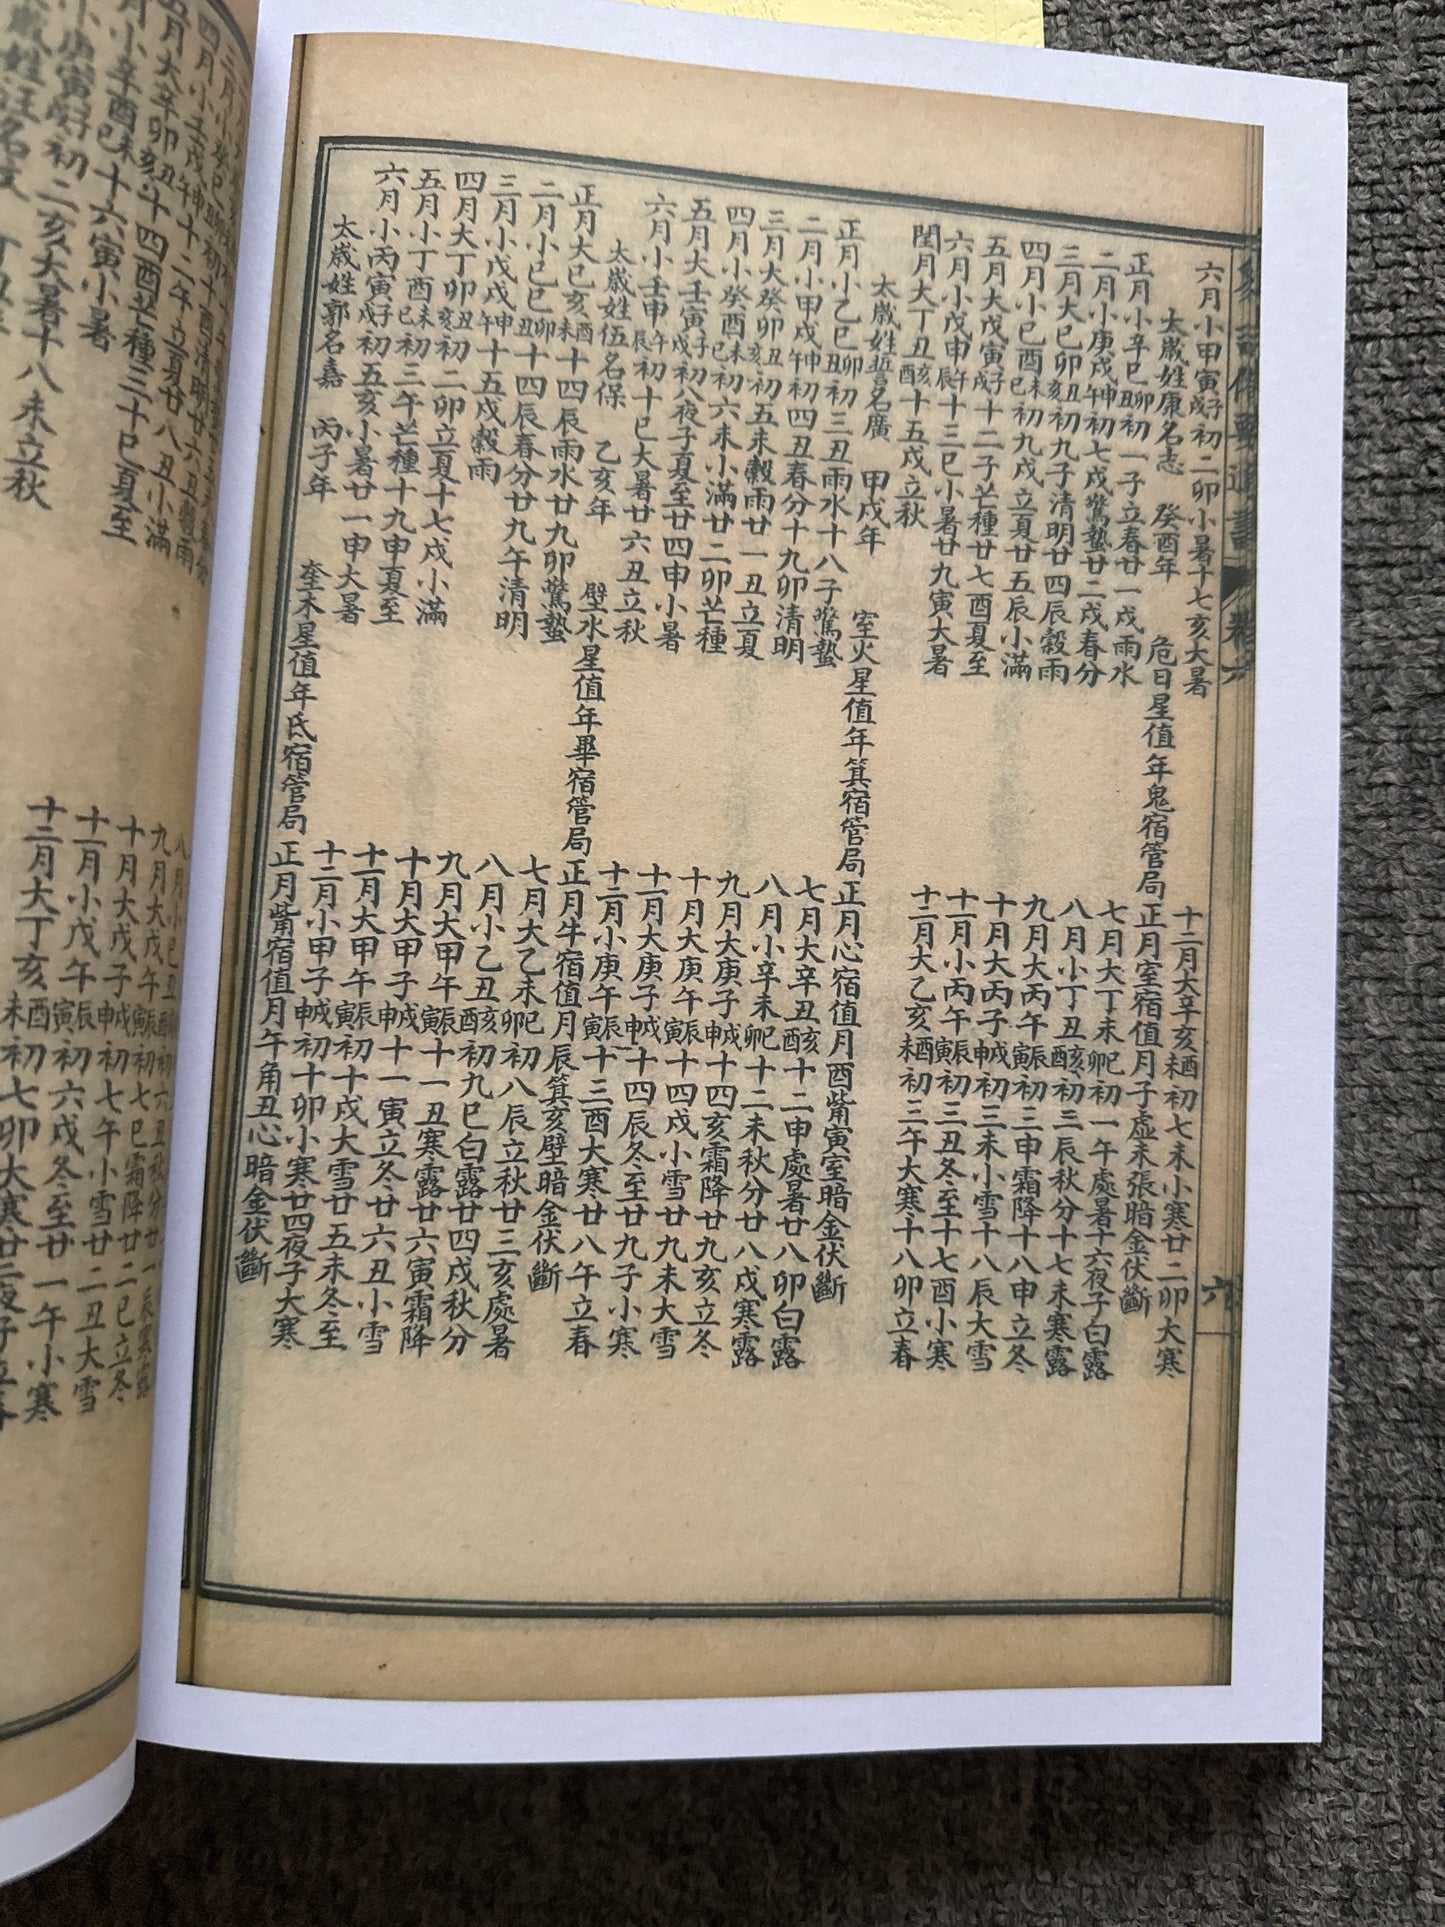 六月小甲寅子戌初二卯小暑十七亥大暑 十二月大辛亥酉未初七未小寒廿二卯大寒
太歲姓康名志 癸酉年 危日星值年鬼宿管局 正月室宿值月子虛未張暗金伏斷
正月小辛巳卯丑初一子立春廿一戌雨水 七月大丁未巳卯初一午處暑十六夜子白露
二月小庚戌申午初七戌驚蟄廿二戌春分 八月小丁丑亥酉初三辰秋分十七未寒露
三月大己卯丑亥初九子清明廿四辰穀雨 九月大丙午辰寅初三申霜降十八申立冬
四月小己酉未巳初九戌立夏廿五辰小滿 十月大丙子戌申初三未小雪十八辰大雪
五月大戊寅子戌十二子芒種廿七酉夏至 十一月小丙午辰寅初三丑冬至十七酉小寒
六月小戊申午辰十三巳小暑廿九寅大暑 十二月大乙亥酉未初三午大寒十八卯立春
閏月大丁丑亥酉十五戌立秋
太歲姓誓名廣 甲戌年 室火星值年箕宿管局 正月心宿值月酉觜寅室暗金伏斷
正月小乙巳卯丑初三丑雨水十八子驚蟄 七月大辛丑亥酉十二申處暑廿八卯白露
二月小甲戌申午初四丑春分十九卯清明 八月小辛未巳卯十二未秋分廿八戌寒露
三月大癸卯丑亥初五未穀雨廿一丑立夏 九月大庚子戌申十四亥霜降廿九亥立冬
四月小癸酉未巳初六未小滿廿二卯芒種 十月大庚午辰寅十四戌小雪廿九未大雪
五月大壬寅子戌初八夜子夏至廿四申小暑 十一月大庚子戌申十四辰冬至廿九子小寒
六月小壬申午辰初十巳大暑廿六丑立秋 十二月小庚午辰寅十三酉大寒廿八午立春
太歲姓伍名保 乙亥年 壁水星值年畢宿管局 正月牛宿值月辰箕亥壁暗金伏斷
正月大己亥酉未十四辰雨水廿九卯驚蟄 七月大乙未巳卯初八辰立秋廿三亥處暑
二月小己巳卯丑十四辰春分廿九午清明 八月小乙丑亥酉初九巳白露廿四戌秋分
三月小戊戌申午十五戌穀雨 九月大甲午辰寅十一丑寒露廿六寅霜降
四月大丁卯丑亥初二卯立夏十七戌小滿 十月大甲子戌申十一寅立冬廿六丑小雪
五月小丁酉未巳初三午芒種十九申夏至 十一月大甲午辰寅初十戌大雪廿五未冬至
六月小丙寅子戌初五亥小暑廿一申大暑 十二月小甲子戌申初十卯小寒廿四夜子大寒
太歲姓郭名嘉 丙子年 奎木星值年氐宿管局 正月觜宿值月午角丑心暗金伏斷
卷六
六
四月小壬戌申午十二午立夏廿八丑小滿 九月大戊午辰寅初七巳霜降廿二巳立冬
五月大辛卯丑亥十四酉芒種三十巳夏至 十月大戊子戌申初七午小雪廿二丑大雪
月小辛酉未巳十六寅小暑 十一月小戊午辰寅初六戌冬至廿一午小寒
初二亥大暑十八未立秋 十二月大丁亥酉未初七卯大寒廿二夜子立春